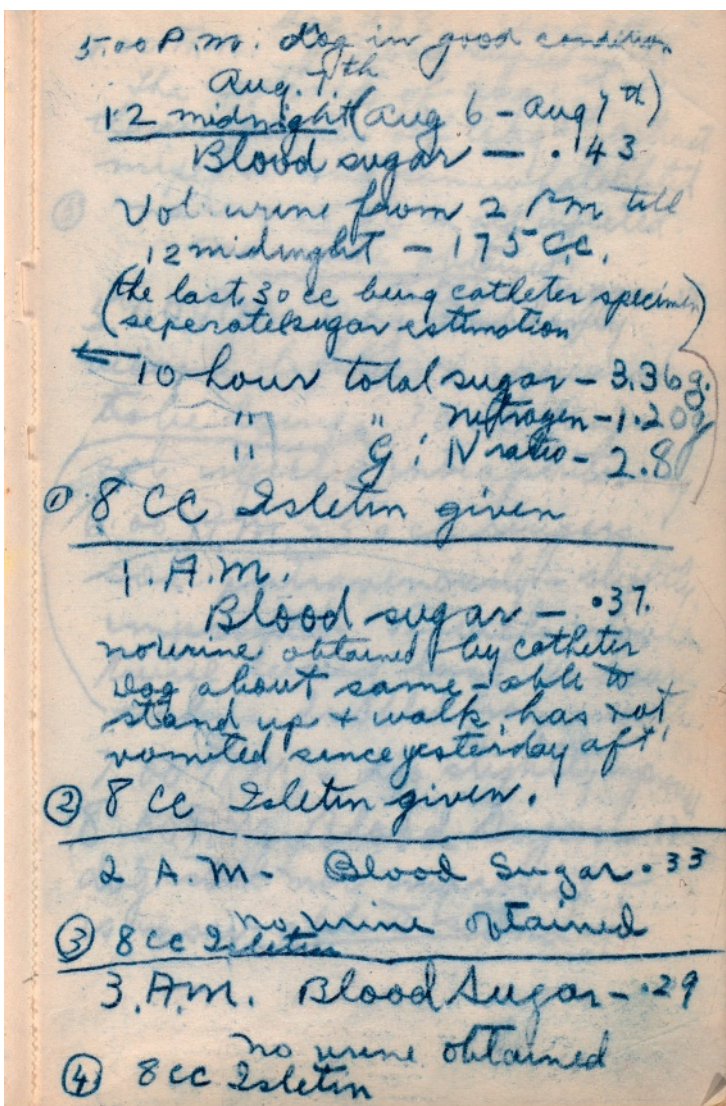 5.00 P.m. dog in good condition
Aug. 7th
12 midnight (Aug 6 - Aug 7th)
Blood sugar — .43
Vol. urine from 2 Pm till
12 midnight - 175 C.C.
(the last 30 cc being catheter specimen)
(seperate sugar estimation
10 hour total sugar - 3.36g.
" " nitrogen - 1.20g
" G:N ratio - 2.8
① 8 CC Isletin given
1. A.M.
Blood sugar — .37.
no urine obtained by catheter
Dog about same - able to
stand up + walk, has not
vomited since yesterday aft.
② 8 CC Isletin given.
2 A.M- Blood Sugar .33
no urine obtained
③ 8 cc Isletin
3. A.M. Blood Sugar - .29
no urine obtained
④ 8 cc Isletin